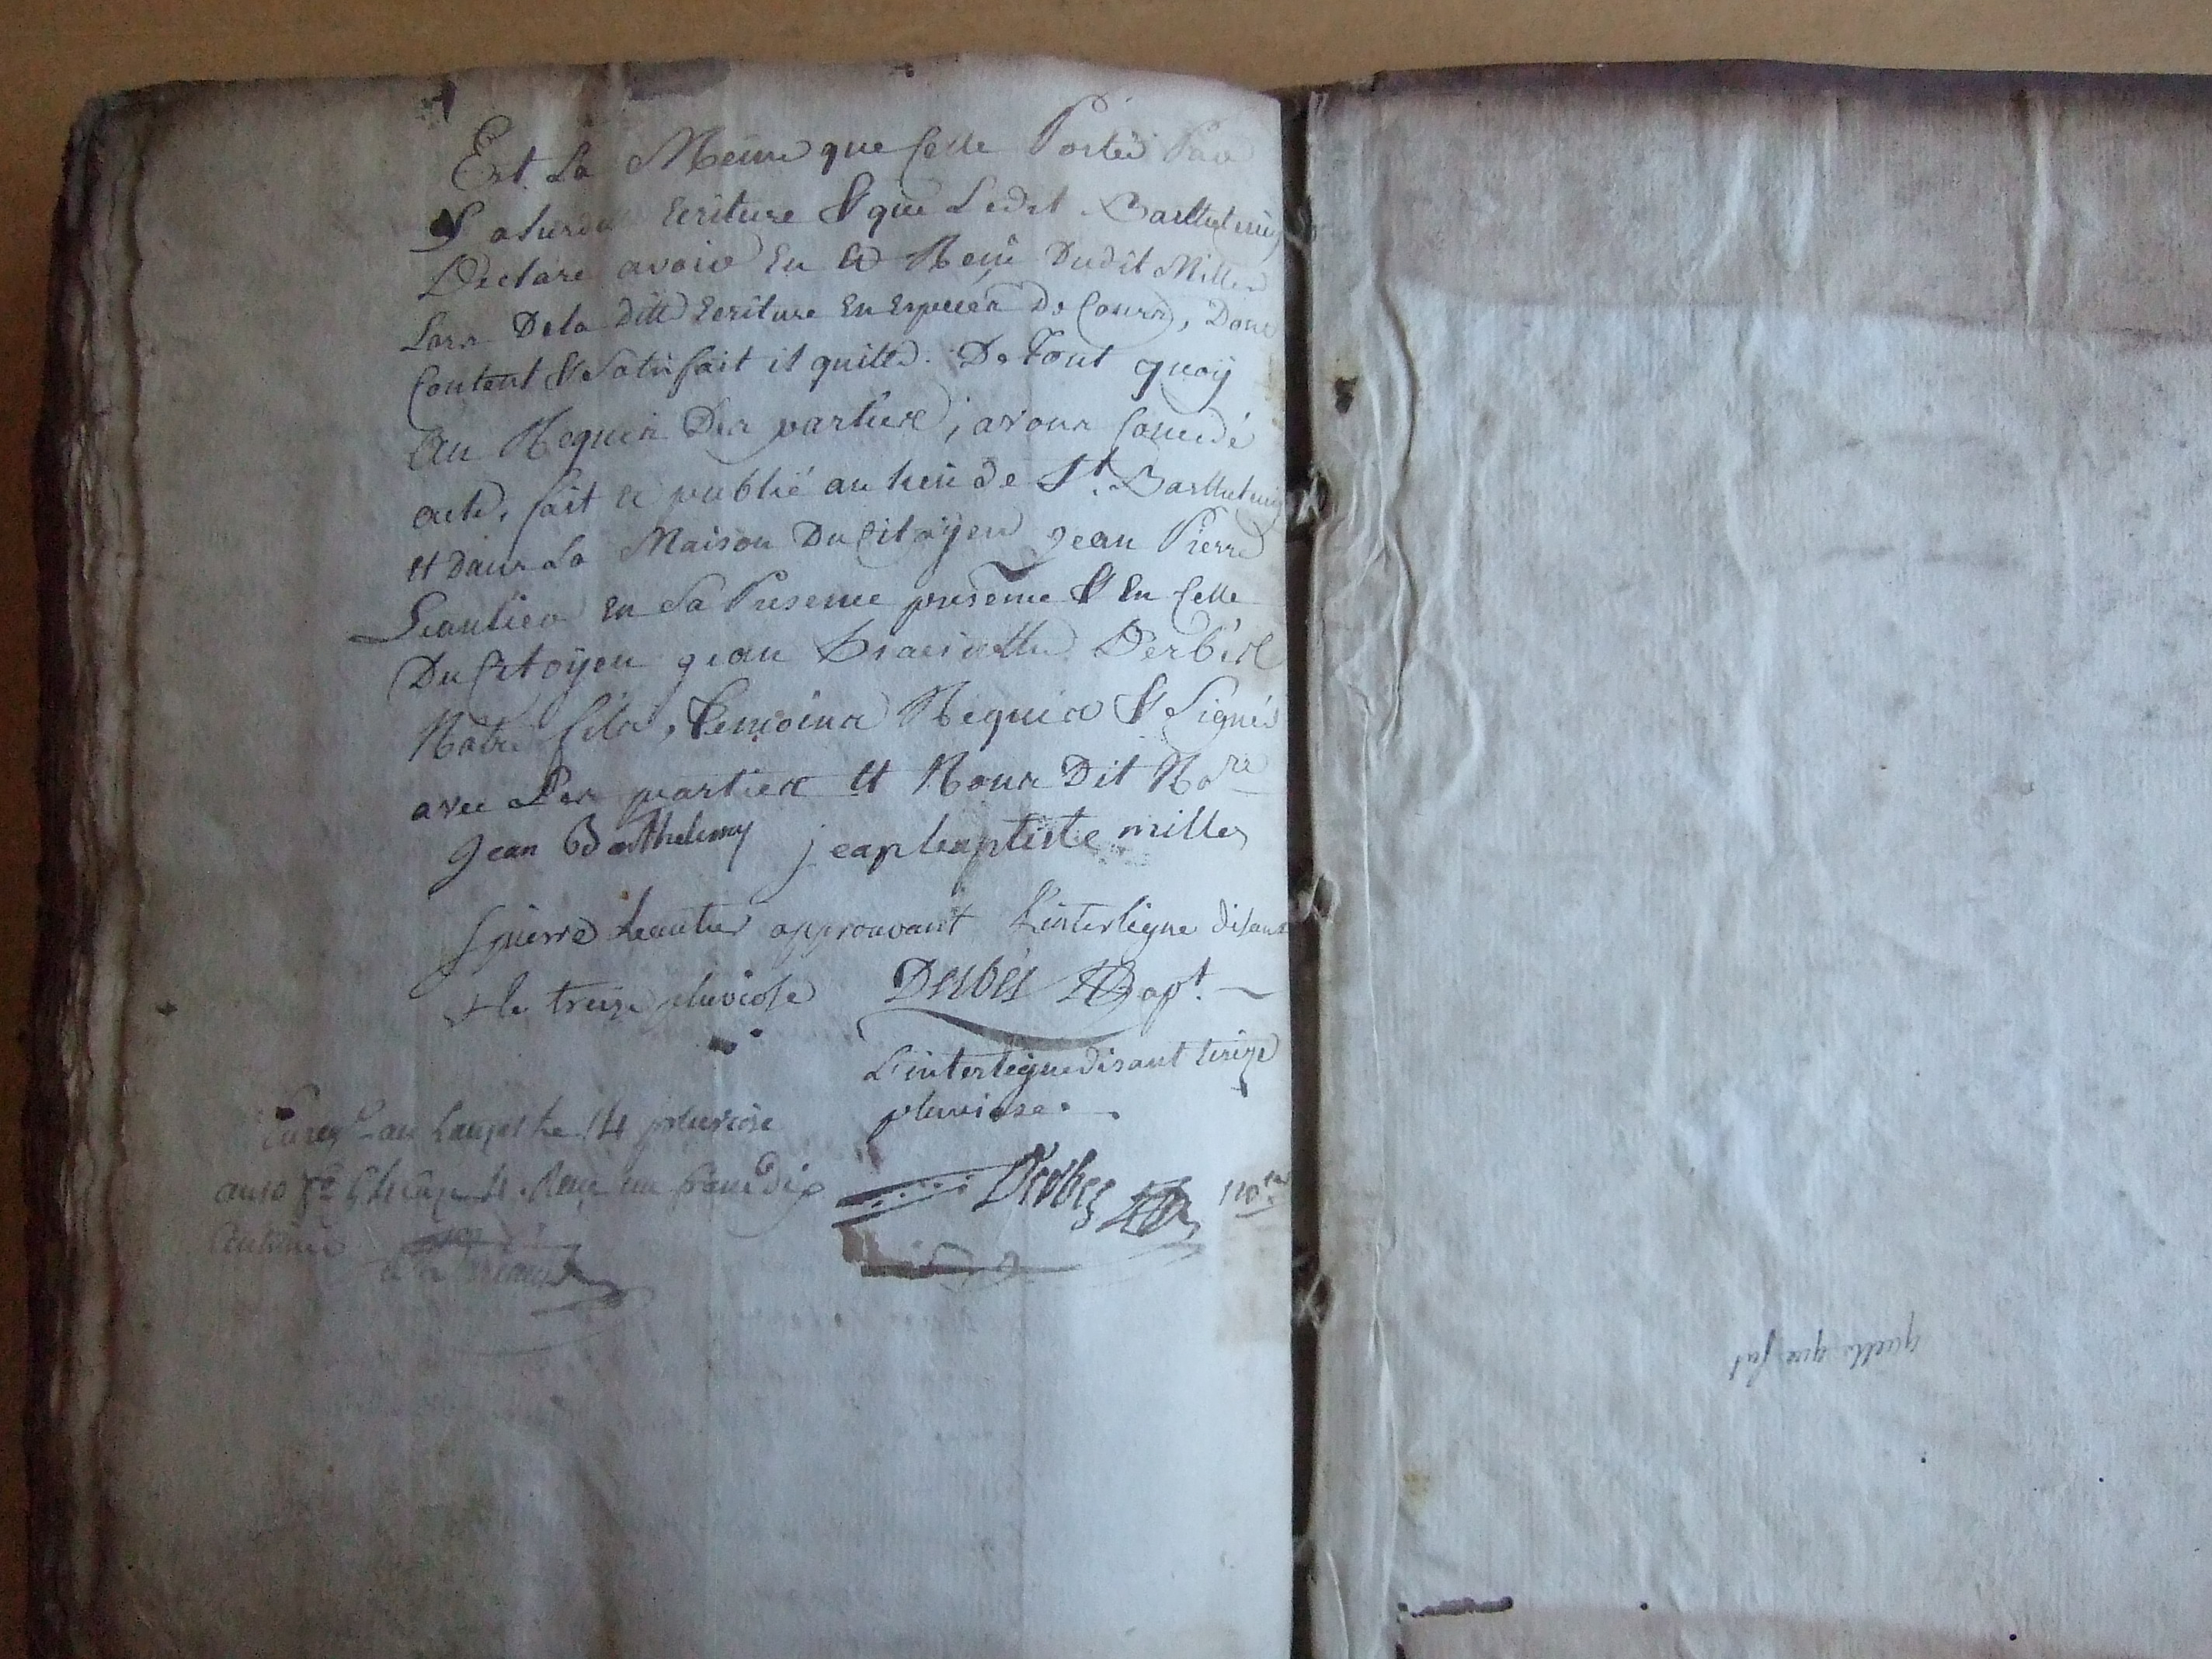 Est La Même que Celle Portée Par
Ecriture & que Ledit Barthelemy
Déclare avoir Eu et Reçu Dudit Miller
Lors Dela ditte Ecriture En Especes De Cours, Dont
Content & Satisfait il quitte. De Tout quoÿ
Au Requis Des parties, avons Concedé
acte, fait et publié au lieu de St. Barthelemy
et dans La Maison Du Citoÿen Jean Pierre
Leautier en Sa Presence presence & En Celle
Du Citoÿen jean Derbés
Notre fils, temoins Requis & Signés
avec Les parties et Nous Dit Nore
Jean Barthelemy jeapbaptiste miller
J pierre Leautier approuvant Linterligne disant
le treize pluviose Derbés Bapt.
L'interligne disant treize
pluviose.
au Lauzet le 14 pluviose
an 10 Reçu un franc dix
Centimes
Derbés nore
quelle que fut